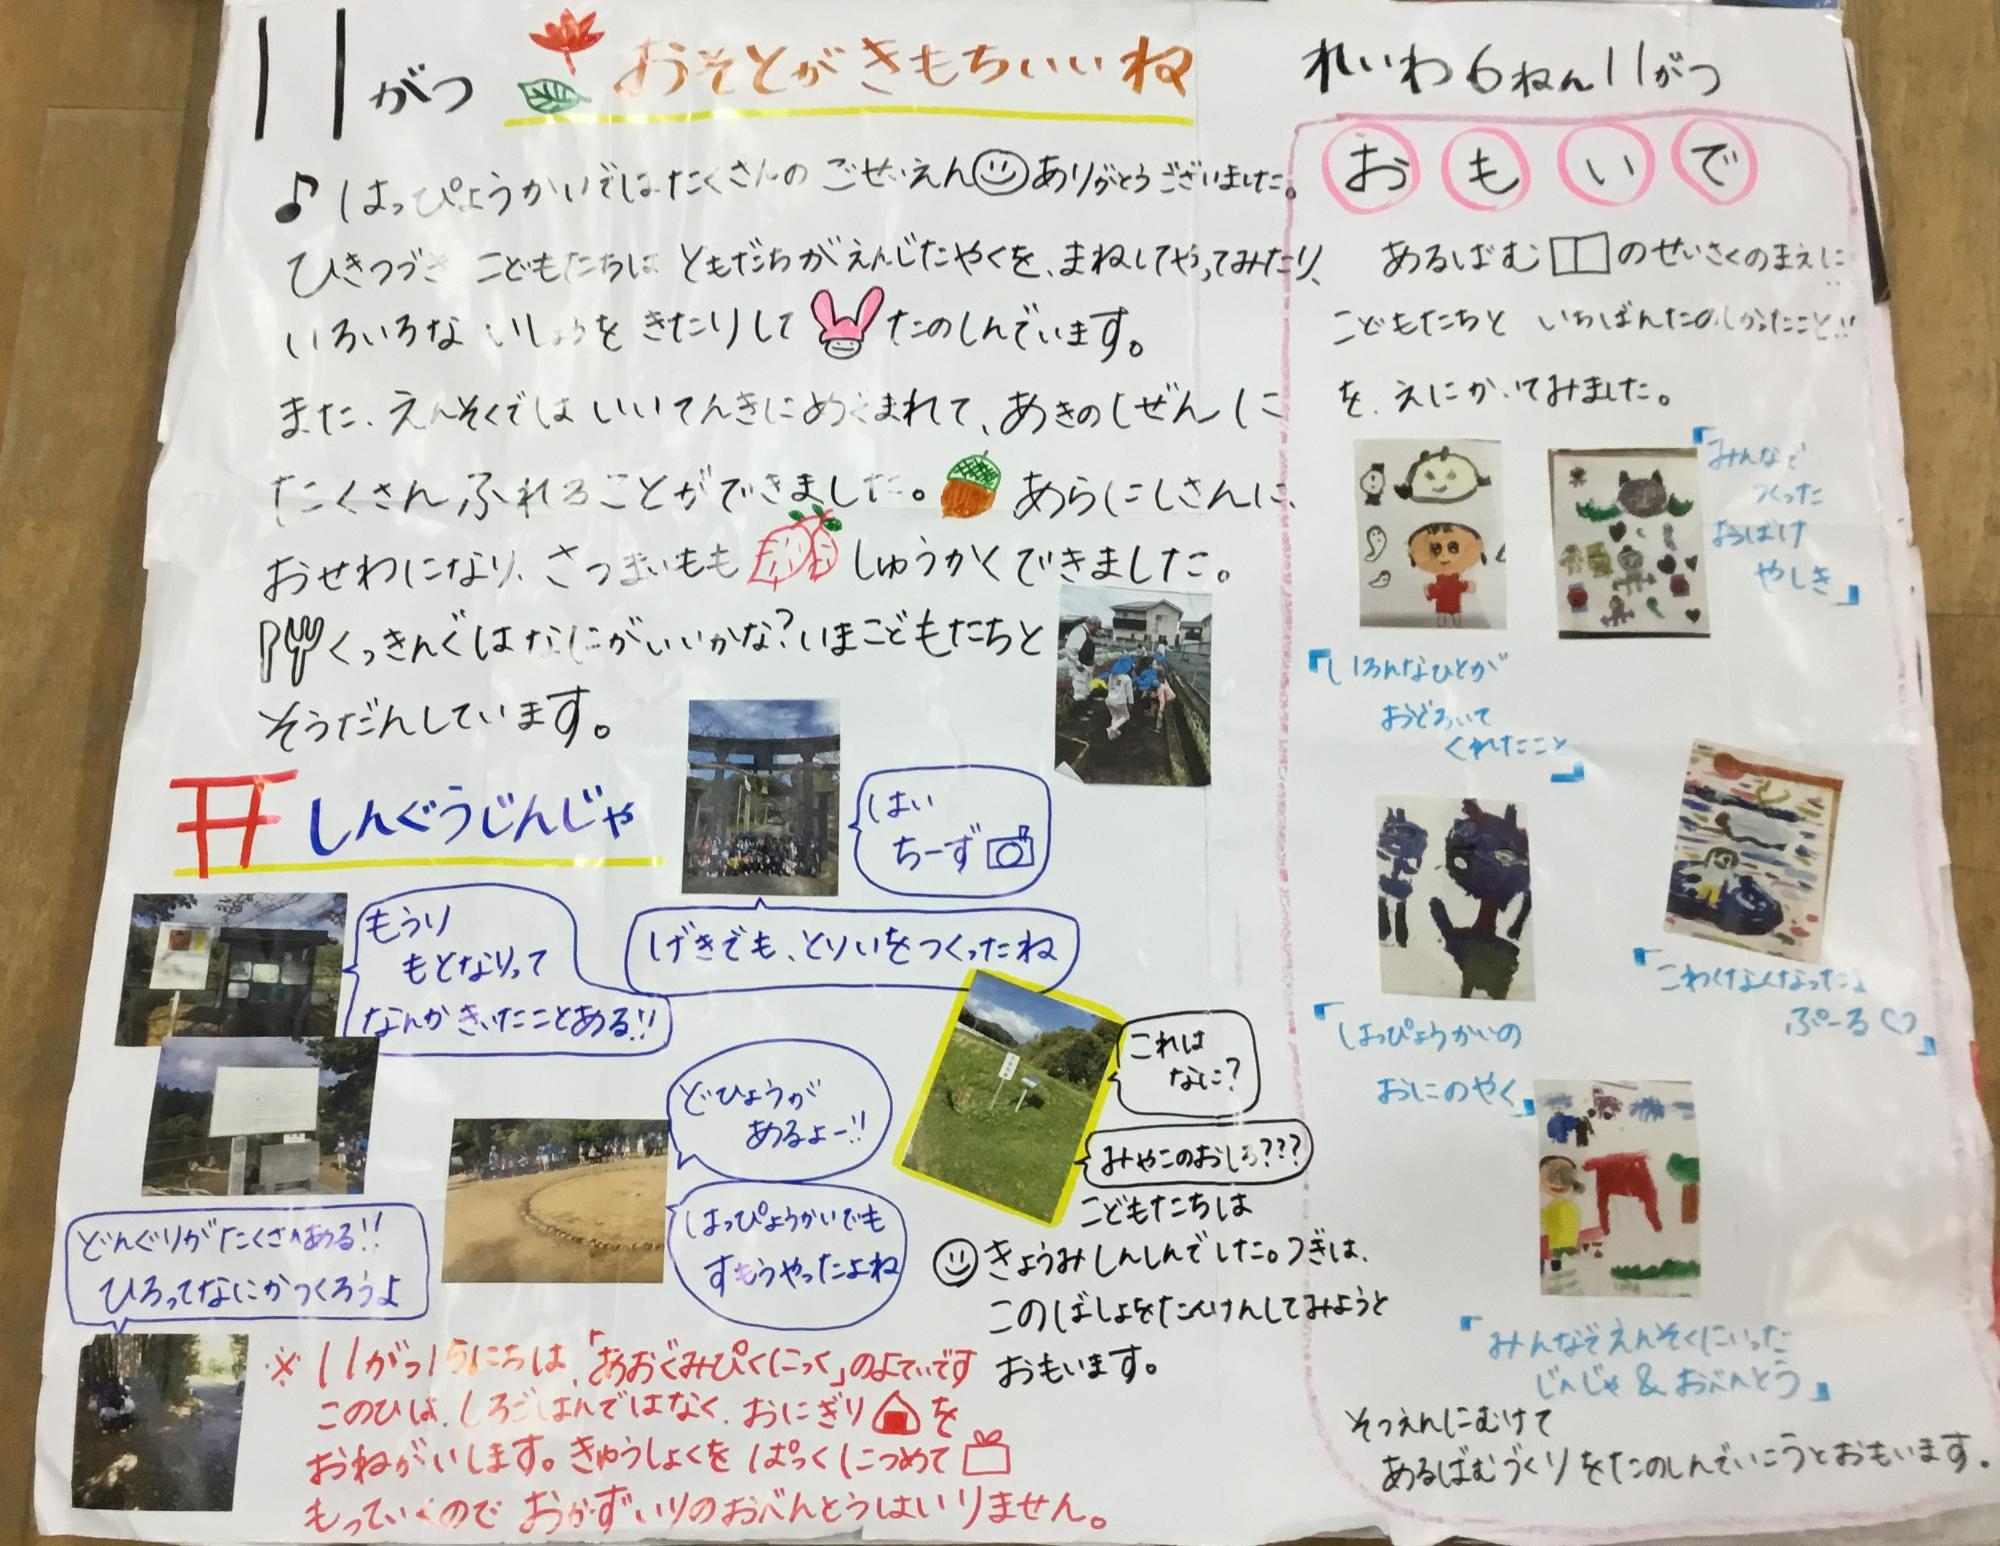 11がつ おそとがきもちいいね
♪はっぴょうかいではたくさんの ごせいえん ありがとうございました。
ひきつづき こどもたちは ともだちがえんじたやくを、まねしてやってみたり、
いろいろな いしょうを きたりして たのしんでいます。
また、えんそくでは いいてんきにめぐまれて、あきのしぜんに
たくさんふれることができました。 あらにしさんに
おせわになり、さつまいもも しゅうかくできました。
くっきんぐはなにがいいかな?いまこどもたちと
そうだんしています。
しんぐうじんじゃ
はい
ちーず
げきでも、とりいをつくったね
もうり
もとなりって
なんかきいたことある!!
どひょうが
あるよー!!
はっぴょうかいでも
すもうやったよね
どんぐりがたくさんある!!
ひろってなにかつくろうよ
これは
なに?
みやこのおしろ???
こどもたちは
きょうみしんしんでした。つぎは、
このばしょをたんけんしてみようと
おもいます。
※11がつ15にちは、「あおぐみぴくにっく」のよていです
このひは、しろごはんではなく、おにぎり を
おねがいします。きゅうしょくを ぱっくにつめて
もっていくので おかずいりのおべんとうはいりません。
れいわ6ねん11がつ
おもいで
あるばむ のせいさくのまえに
こどもたちと いちばんたのしかったこと!!
を、えにかいてみました。
「みんなで
つくった
おばけ
やしき」
「いろんなひとが
おどろいて
くれたこと」
「こわくなくなったよ
ぷーる♡」
「はっぴょうかいの
おにのやく」
「みんなでえんそくにいった
じんじゃ&おべんとう」
そつえんにむけて
あるばむづくりをたのしんでいこうとおもいます。